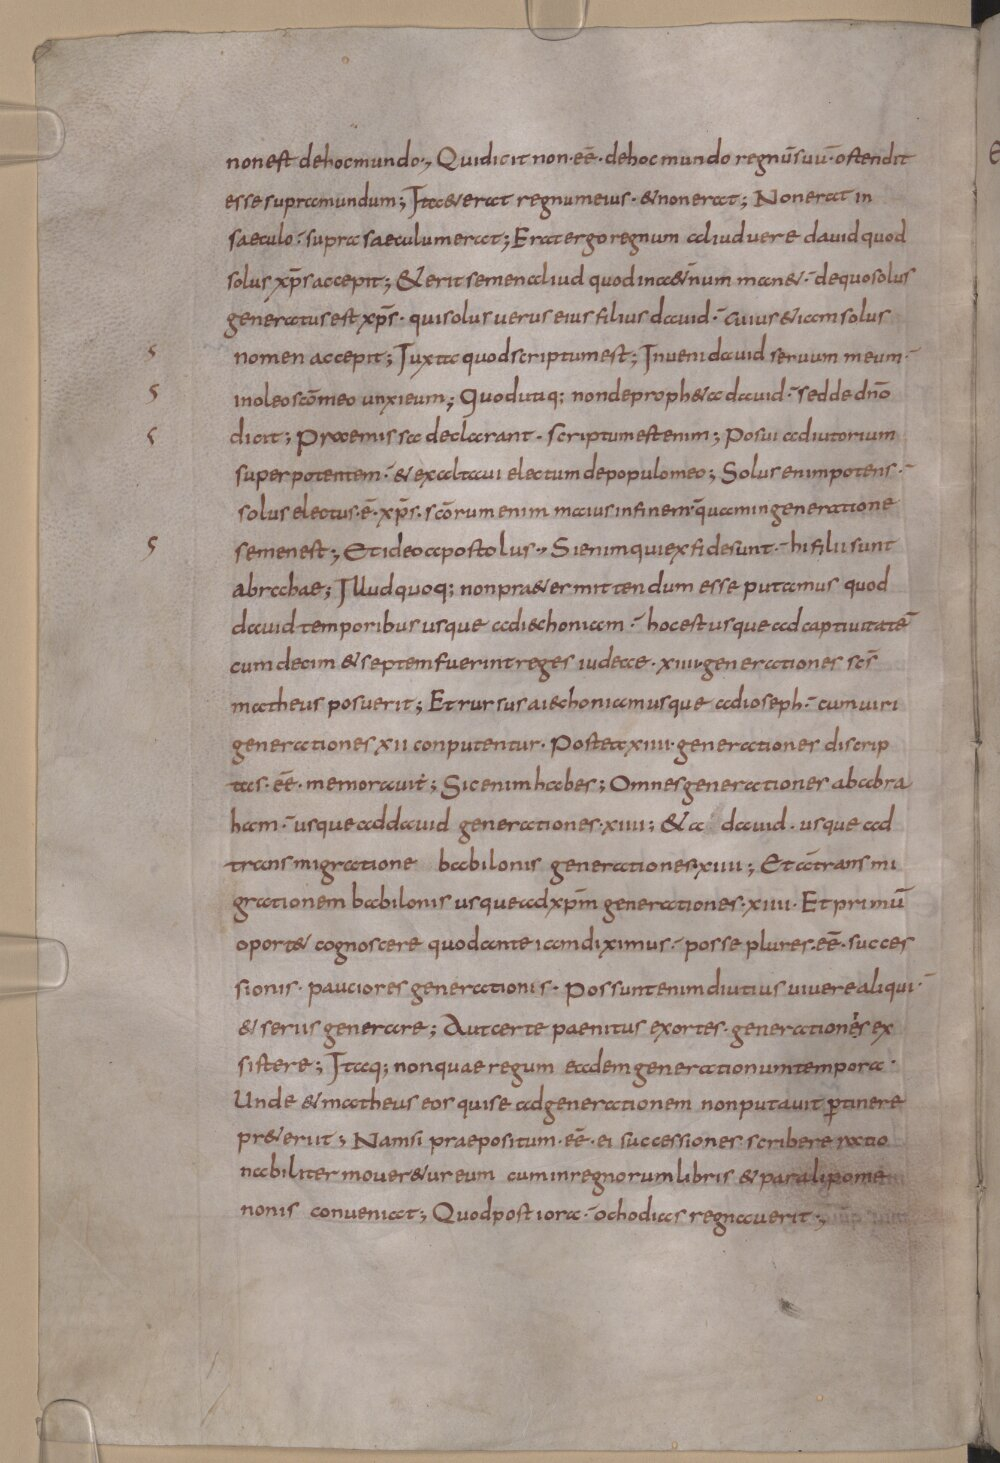 non est de hoc mundo·, Qui dicit non·eē·de hoc mundo regnū suū·ostendit
esse supra mundum; Ita & erat regnum eius·& non erat; Non erat in
saeculo·supra saeculum erat; Erat ergo regnum aliud uere dauid quod
solus xp̄s accepit; & erit semen aliud quod in aet&̄num man&·de quo solus
generatus est xp̄s·qui solus uerus eius filius dauid·cuius & iam solus
nomen accepit; Iuxta quod scriptum est; Inueni dauid seruum meum·
in oleo scō meo unxi eum; Quod utiq; non de proph&a dauid·sed de dn̄o
dicit; Proxemissa declarant·scriptum est enim; Posui adiutorium
super potentem·& exaltaui electum de populo meo; Solus enim potens·
solus electus·ē·xp̄s·scōrum enim maius in finem quam in generatione
semen est; Et ideo apostolus·, Si enim qui ex fide sunt·hi filii sunt
abrahae; Illud quoq; non pra&ermittendum esse putamus quod
dauid temporibus usque ad iechoniam·hoc est usque ad captiuitatē
cum decim & septem fuerint reges iudeae·xiiii·generationes scs̄
matheus posuerit; Et rursus a iechoniam usque ad ioseph·cum uiri
generationes xii conputentur·Postea xiiii·generationes discrip
tas·eē·memorauit; Sic enim habes; Omnes generationes ab abra
ham·usque ad dauid generationes·xiiii; & a dauid·usque ad
transmigratione babilonis generationes·xiiii; Et a transmi
grationem babilonis usque ad xp̄m generationes·xiiii·Et primū
oport& cognoscere quod ante iam diximus·posse plures·eē·succes
sionis·pauciores generationis·Possunt enim diutius uiuere aliqui·
& serius generare; Aut certe paenitus exortes·generationes ex
sistere; Itaq; non quae regum eadem generationum tempora·
Unde & matheus eos qui se ad generationem non putauit p̄tinere
pr&eriit; Nam si praepositum·eē·ei successiones scribere ratio
nabiliter mouer&ur eum cum in regnorum libris & paralipome
nonis conueniat; Quod post iora·ochodias regnauerit;